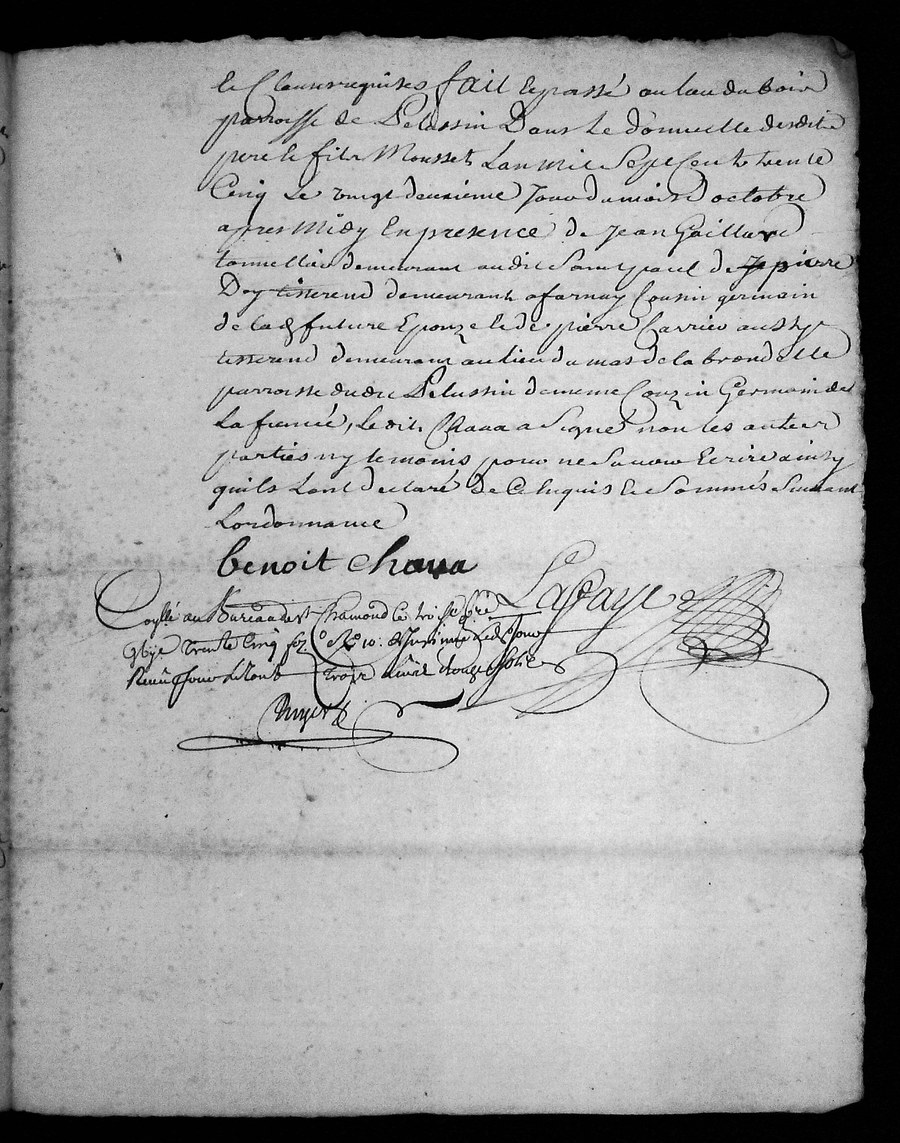 et Clauses requises fait et passé au lieu du bois
parroisse de Pelussin Dans le domicille desdits
pere et fils Mousset Lan mil Sept Cents trente
Cinq Le vingt deuxieme Jour du mois D octobre
apres Midy En presence de Jean Gaillard
tonnellier demeurant audit Saint paul de pierre
Doy tisserend demeurant a farnay Cousin germain
de lad future Epouze et de pierre Carrier aussy
tisserend demeurant au lieu du mas de la brondelle
parroisse dudit Pelussin de meme Couzin Germain de
La fiancé, Ledit Chava a Signé non les autres
parties ny temoins pour ne Savoir Ecrire ainsy
quils Lont declaré de Ce Enquis et Sommés Suivant
Lordonnance
benoit Chava
Lafaye
au Bureau de St Chamond le trois
trente Cinq
Reçu pour trois livres Sols